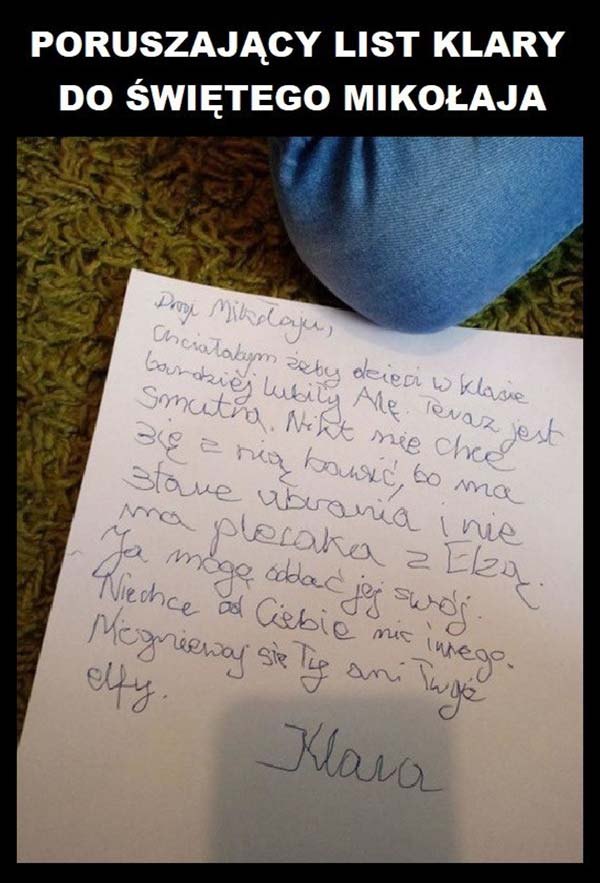 PORUSZAJĄCY LIST KLARY
DO ŚWIĘTEGO MIKOŁAJA
Drogi Mikołaju,
Chciałabym żeby dzieci w klasie
bardziej lubiły Alę. Teraz jest
smutna. Nikt nie chce
się z nią bawić, bo ma
stare ubrania i nie
ma plecaka z Elzą.
Ja mogę oddać jej swój.
Niechce od Ciebie nic innego.
Niegniewaj się Ty ani Twoje
elfy.
Klara